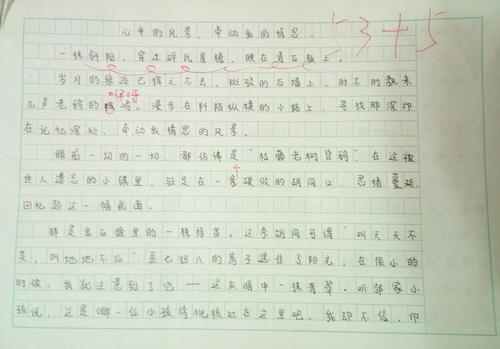 心中的风景，牵动我的情思。
53+5
一抹斜阳，穿过碎瓦屋檐，映在青石板上。
岁月的痕迹已惜之不去，斑驳的石墙上，时不时飘来
哌哌
几声老鸦的鸣。漫步在阡陌纵横的小路上，寻找那深印
在记忆深处，牵动我情思的风景。
眼前一切的一切，都仿佛是“枯藤老树昏鸦”，在这被
世人遗忘的小镇里，驻足在一破败的胡同口，思绪蔓延
回忆起这一幅画面。
那是岩石缝里的一株树苗。这条胡同可谓“叫天天不
灵，叫地地不应”，五七扭八的房子遮住了阳光，在很小的
时候，我就注意到了它——这灰暗中一抹青翠。听邻家小
孩说，这是哪一位小孩将桃核吐在这里吧，我却不信，印